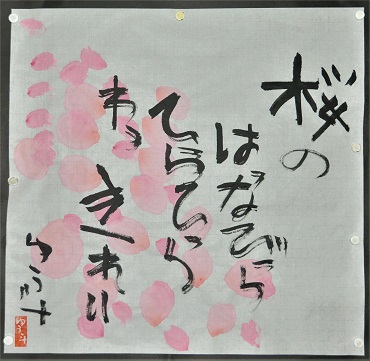 桜の
はなびら
ひらひら
わぁ
きれい